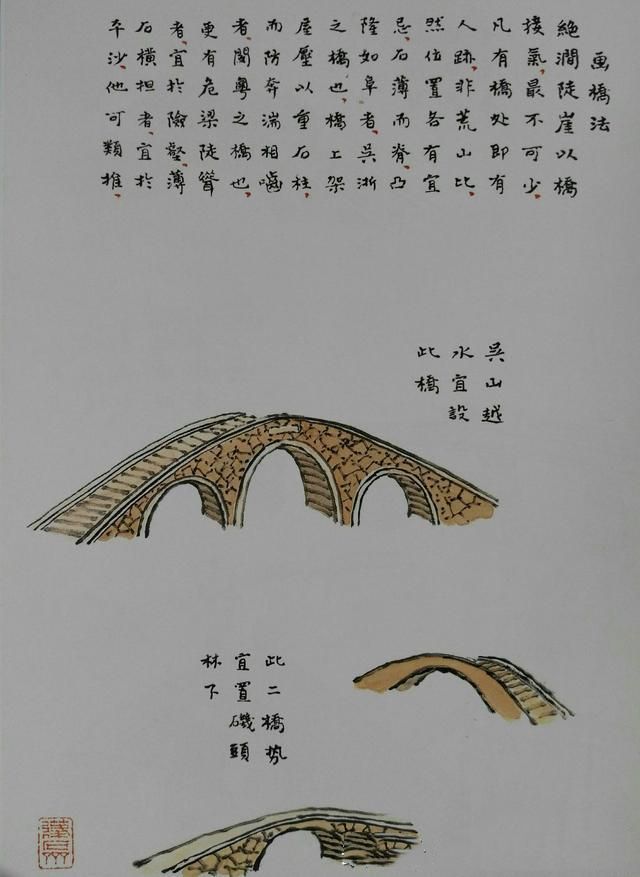 画橋法
絶澗陡崖以橋
接氣最不可少
凡有橋處即有
人跡非荒山比
然位置各有宜
忌石薄而脊凸
隆如阜者吳浙
之橋也橋上架
屋壓以重石柱
而防奔湍相嚙
者閩粵之橋也
更有危梁陡聳
者宜於險壑薄
石橫担者宜於
平沙他可類推
吳山越
水宜設
此橋
此二橋勢
宜置磯頭
林下